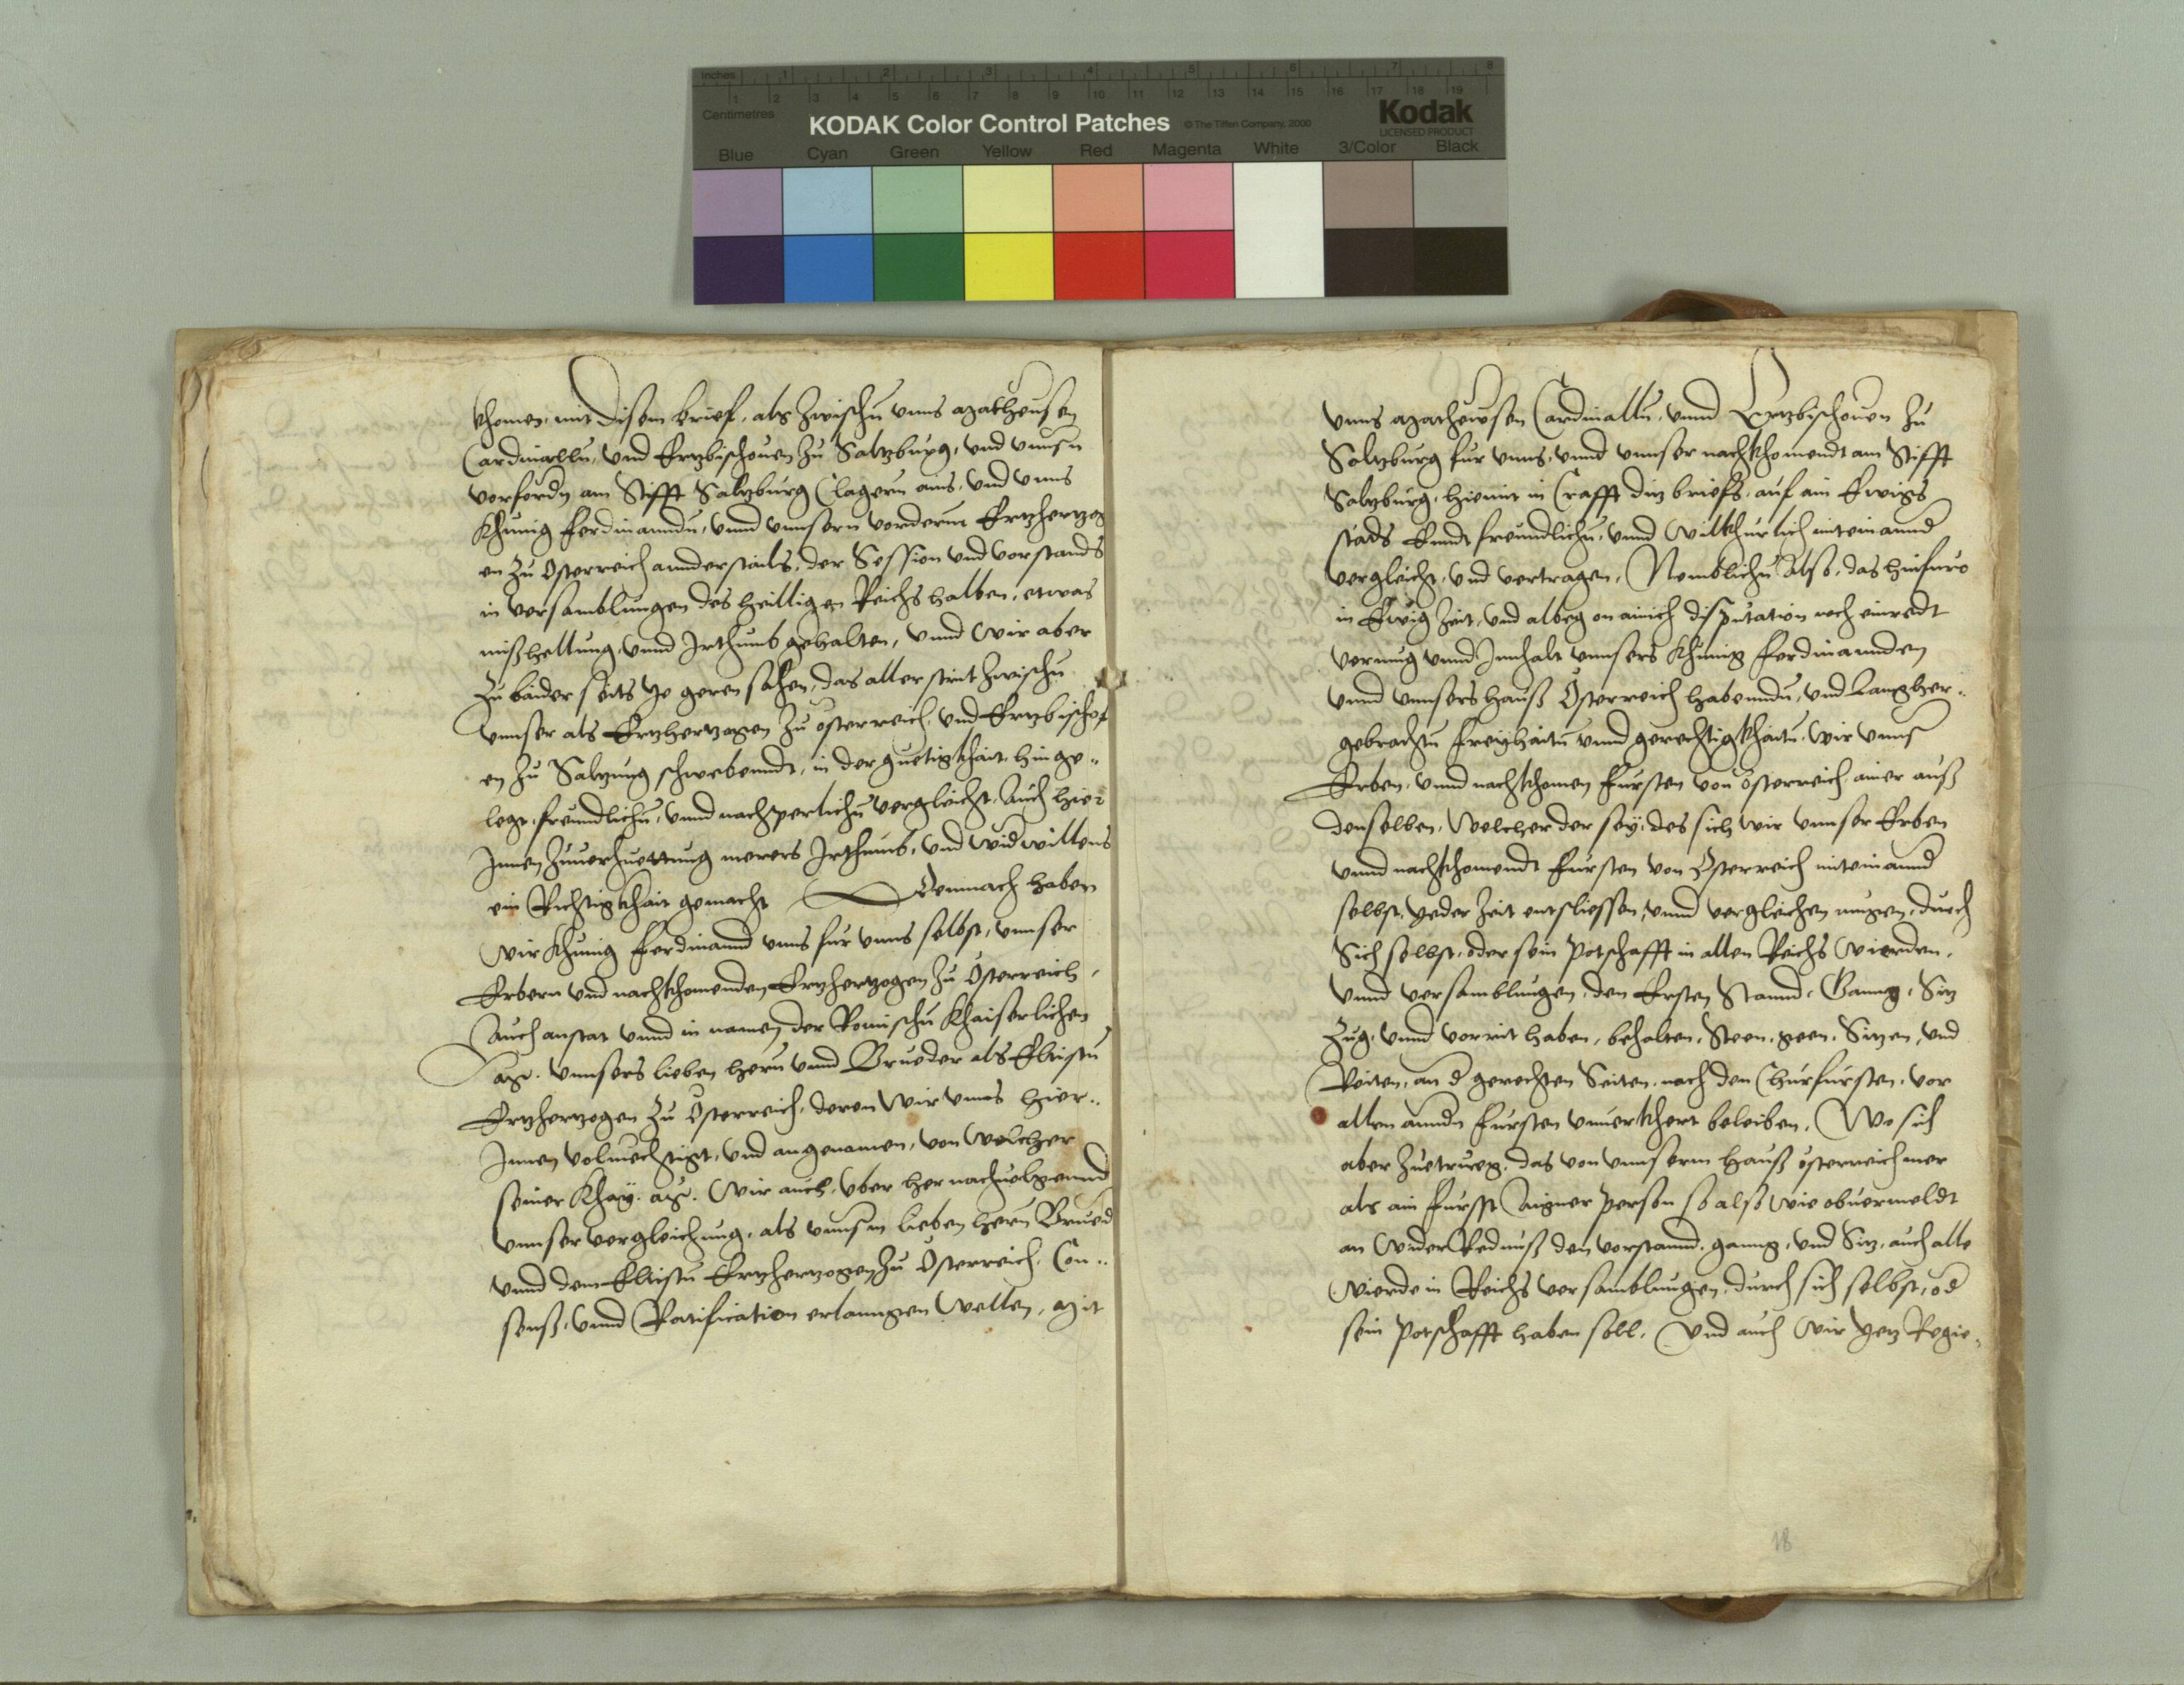 inches 1 2 3 4 5 6 7 8
1 2 3 4 5 6 7 8 9 10 11 12 13 14 15 16 17 18 19
Centimetres
KODAK Color Control Patches © The Tiffen Company, 2000 Kodak
LICENSED PRODUCT
Blue Cyan Green Yellow Red Magenta White 3/Color Black
khomen, mit disem brief, als zwischn vnns Matheusen
Cardinalln, vnd Ertzbischouen zu Saltzburg, vnd vnnsn
vorfordn am Stifft Saltzburg Clagern ains, vnd vnns
Khunig Ferdinanndn, vnnd vnnsern vordern Ertzhertzog
en zu Osterreich annderstails, der Session vnd vorstands
in versamblungen des heilligen Reichs halben, etwas
mißhellung, vnnd Irthumb gehalten, vnnd Wir aber
zu baider seits ye geren sahen, das aller strit zwischn
vnnser als Ertzhertzogen zu Osterreich, vnd Ertzbischof
en zu Saltzburg schwebenndt, in der guetigkhait hinge-
legt, freundlichn, vnnd nachperlichn vergleicht, Auch hier
Innen zuuerhuettung merers Irthumbs, vnd widwillens
ein Richtigkhait gemacht Demnach haben
Wir Khunig Ferdinannd vnns fur vnns selbst, vnnser
Erbern vnd nachkhomenden Ertzhertzogen zu Österreich,
Auch anstat vnnd in namen der Römischn Khaiserlichen
Mt. vnnsers lieben hern vnnd Brueder als Elltistn
Ertzhertzogen zu Österreich, deren Wir vnns hier-
Innen volmechtigt, vnd angenomen, von Welcher
seiner Khay. Mt. Wir auch, vber her nachuolgennd
vnnser vergleichung, als vnnsrn lieben hern Brued
vnnd dem Elltistn Ertzhertzogen zu Österreich, Con-
senß, vnnd Ratification erlanngen Wellen, Mit
vnns Matheusen Cardinalln, vnnd Ertzbischouen zu
Saltzburg fur vnns, vnnd vnnser nachkhomendt am Stifft
Saltzburg, hiemit in Crafft ditz briefs, auf ain Ewigs
städs Ennd freundlichn, vnnd Wilkhurlich miteinannd
vergleicht, vnd vertragen, Nemblichn also, das hinfuro
in Ewig Zeit, vnd albeg on ainich disputation noch einredt
vermug vnnd Innhalt vnnsers Khunig Ferdinannden
vnnd vnnsers hauß Österreich habenndn, vnd Langher-
gebrachtn freyhaitn vnnd gerechtigkhaitn, Wir vnns
Erben, vnnd nachkhomen Fursten von Österreich, ainer auß
denselben, Welcher der sey, des sich Wir vnnser Erben
vnnd nachkhomendt Fursten von Österreich miteinannd
selbst, yeder Zeit entsliessen, vnnd vergleichen mugen, durch
Sich selbst, oder sein Potschafft in allen Reichs Wierden,
vnnd versamblungen, den Ersten Stannd, Ganng, Sitz
Zug, vnnd vorrit haben, behalten, Steen, geen, Sitzen, vnd
Reiten, an d gerechten Seiten, nach den Churfursten, vor
allen anndn Fursten vnuerkhert beleiben, Wo sich
aber zuetrueg, das von vnnserm hauß Österreich mer
als ain Furst Aigner person so also Wie obuermeldt
an Wider Rednuß den vorstannd, ganng, vnd Sitz, auch alle
Wierde in Reichs versamblungen, durch sich selbst, od
sein Potschafft haben soll, Vnd auch Wir yetz Regie-
18